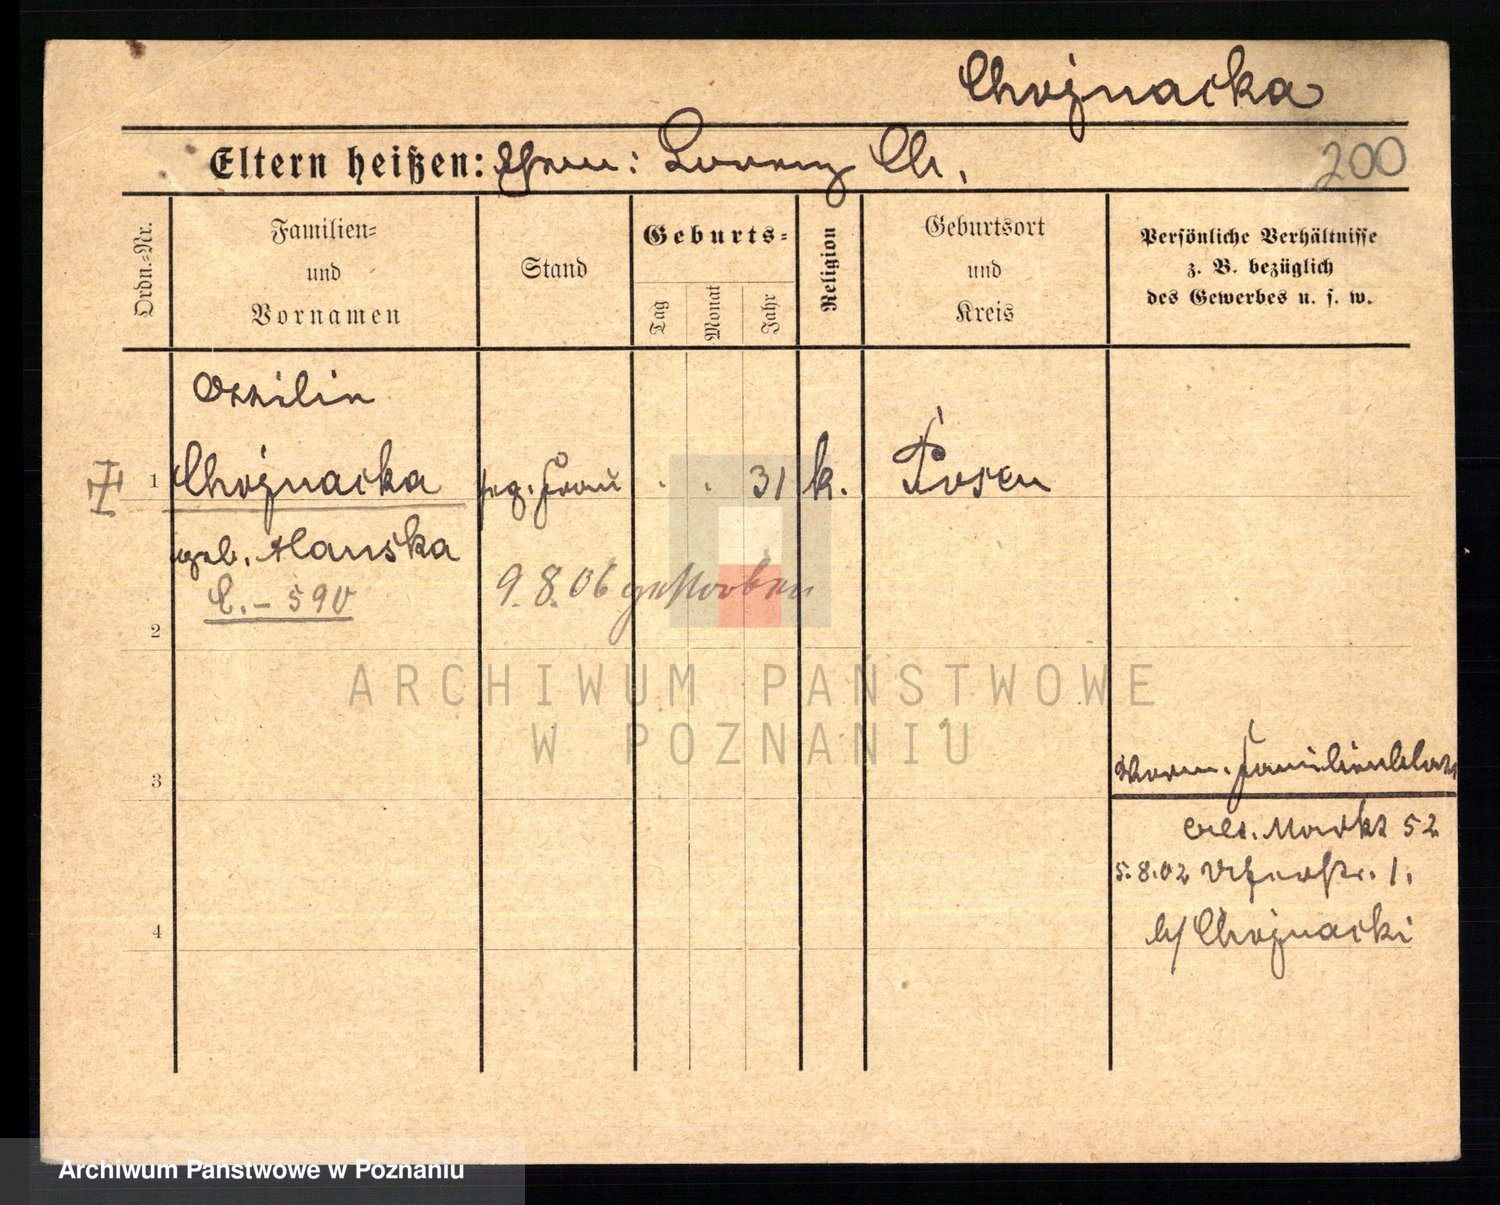 Chojnacka
Eltern heißen: Ehem: Lorenz Ch.
200
Ordn.=Nr.
Familien=
und
Vornamen
Stand
Geburts=
Tag
Monat
Jahr
Religion
Geburtsort
und
Kreis
Persönliche Verhältnisse
z. B. bezüglich
des Gewerbes u. s. w.
Ottilie
1 Chojnacka Frau . . 31 k. Posen
geb. Hanska
C. - 590
9.8.06 gestorben
2
ARCHIWUM PAŃSTWOWE
W POZNANIU
3
Familienblatt
Markt 52
5.8.02 1.
b/ Chojnacki
4
Archiwum Państwowe w Poznaniu